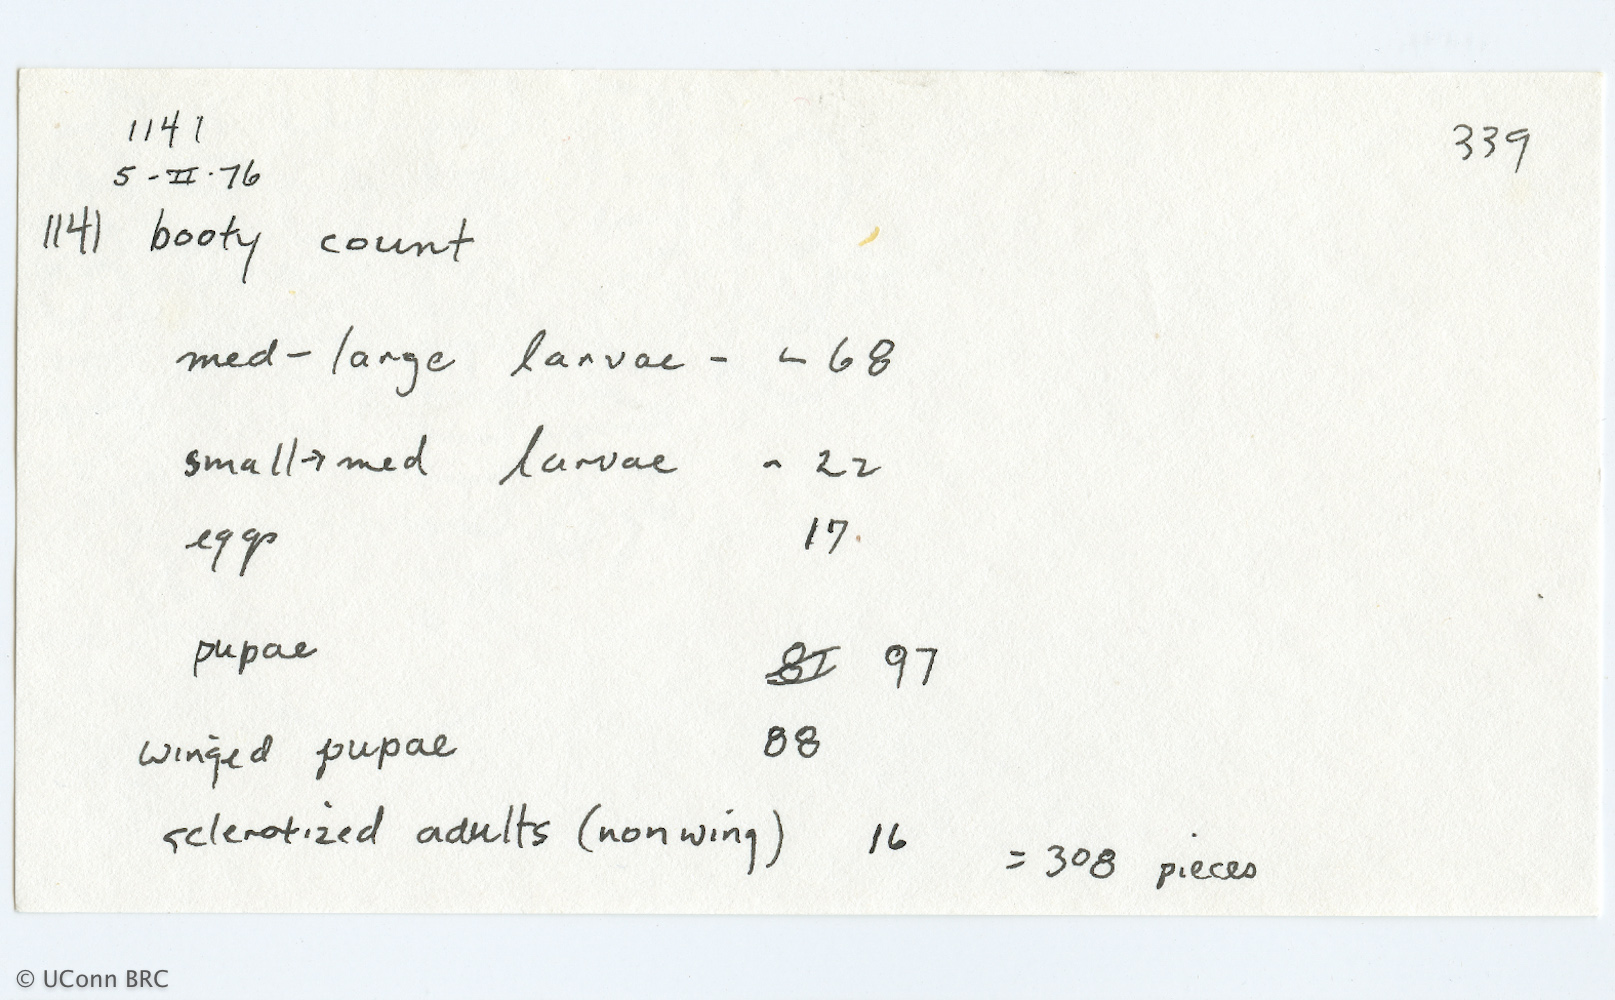 1141
339
5-II-76
1141 booty count
med-large larvae - - 68
small→med larvae - 22
eggs 17
pupae 81 97
winged pupae 88
sclerotized adults (nonwing) 16
= 308 pieces
© UConn BRC